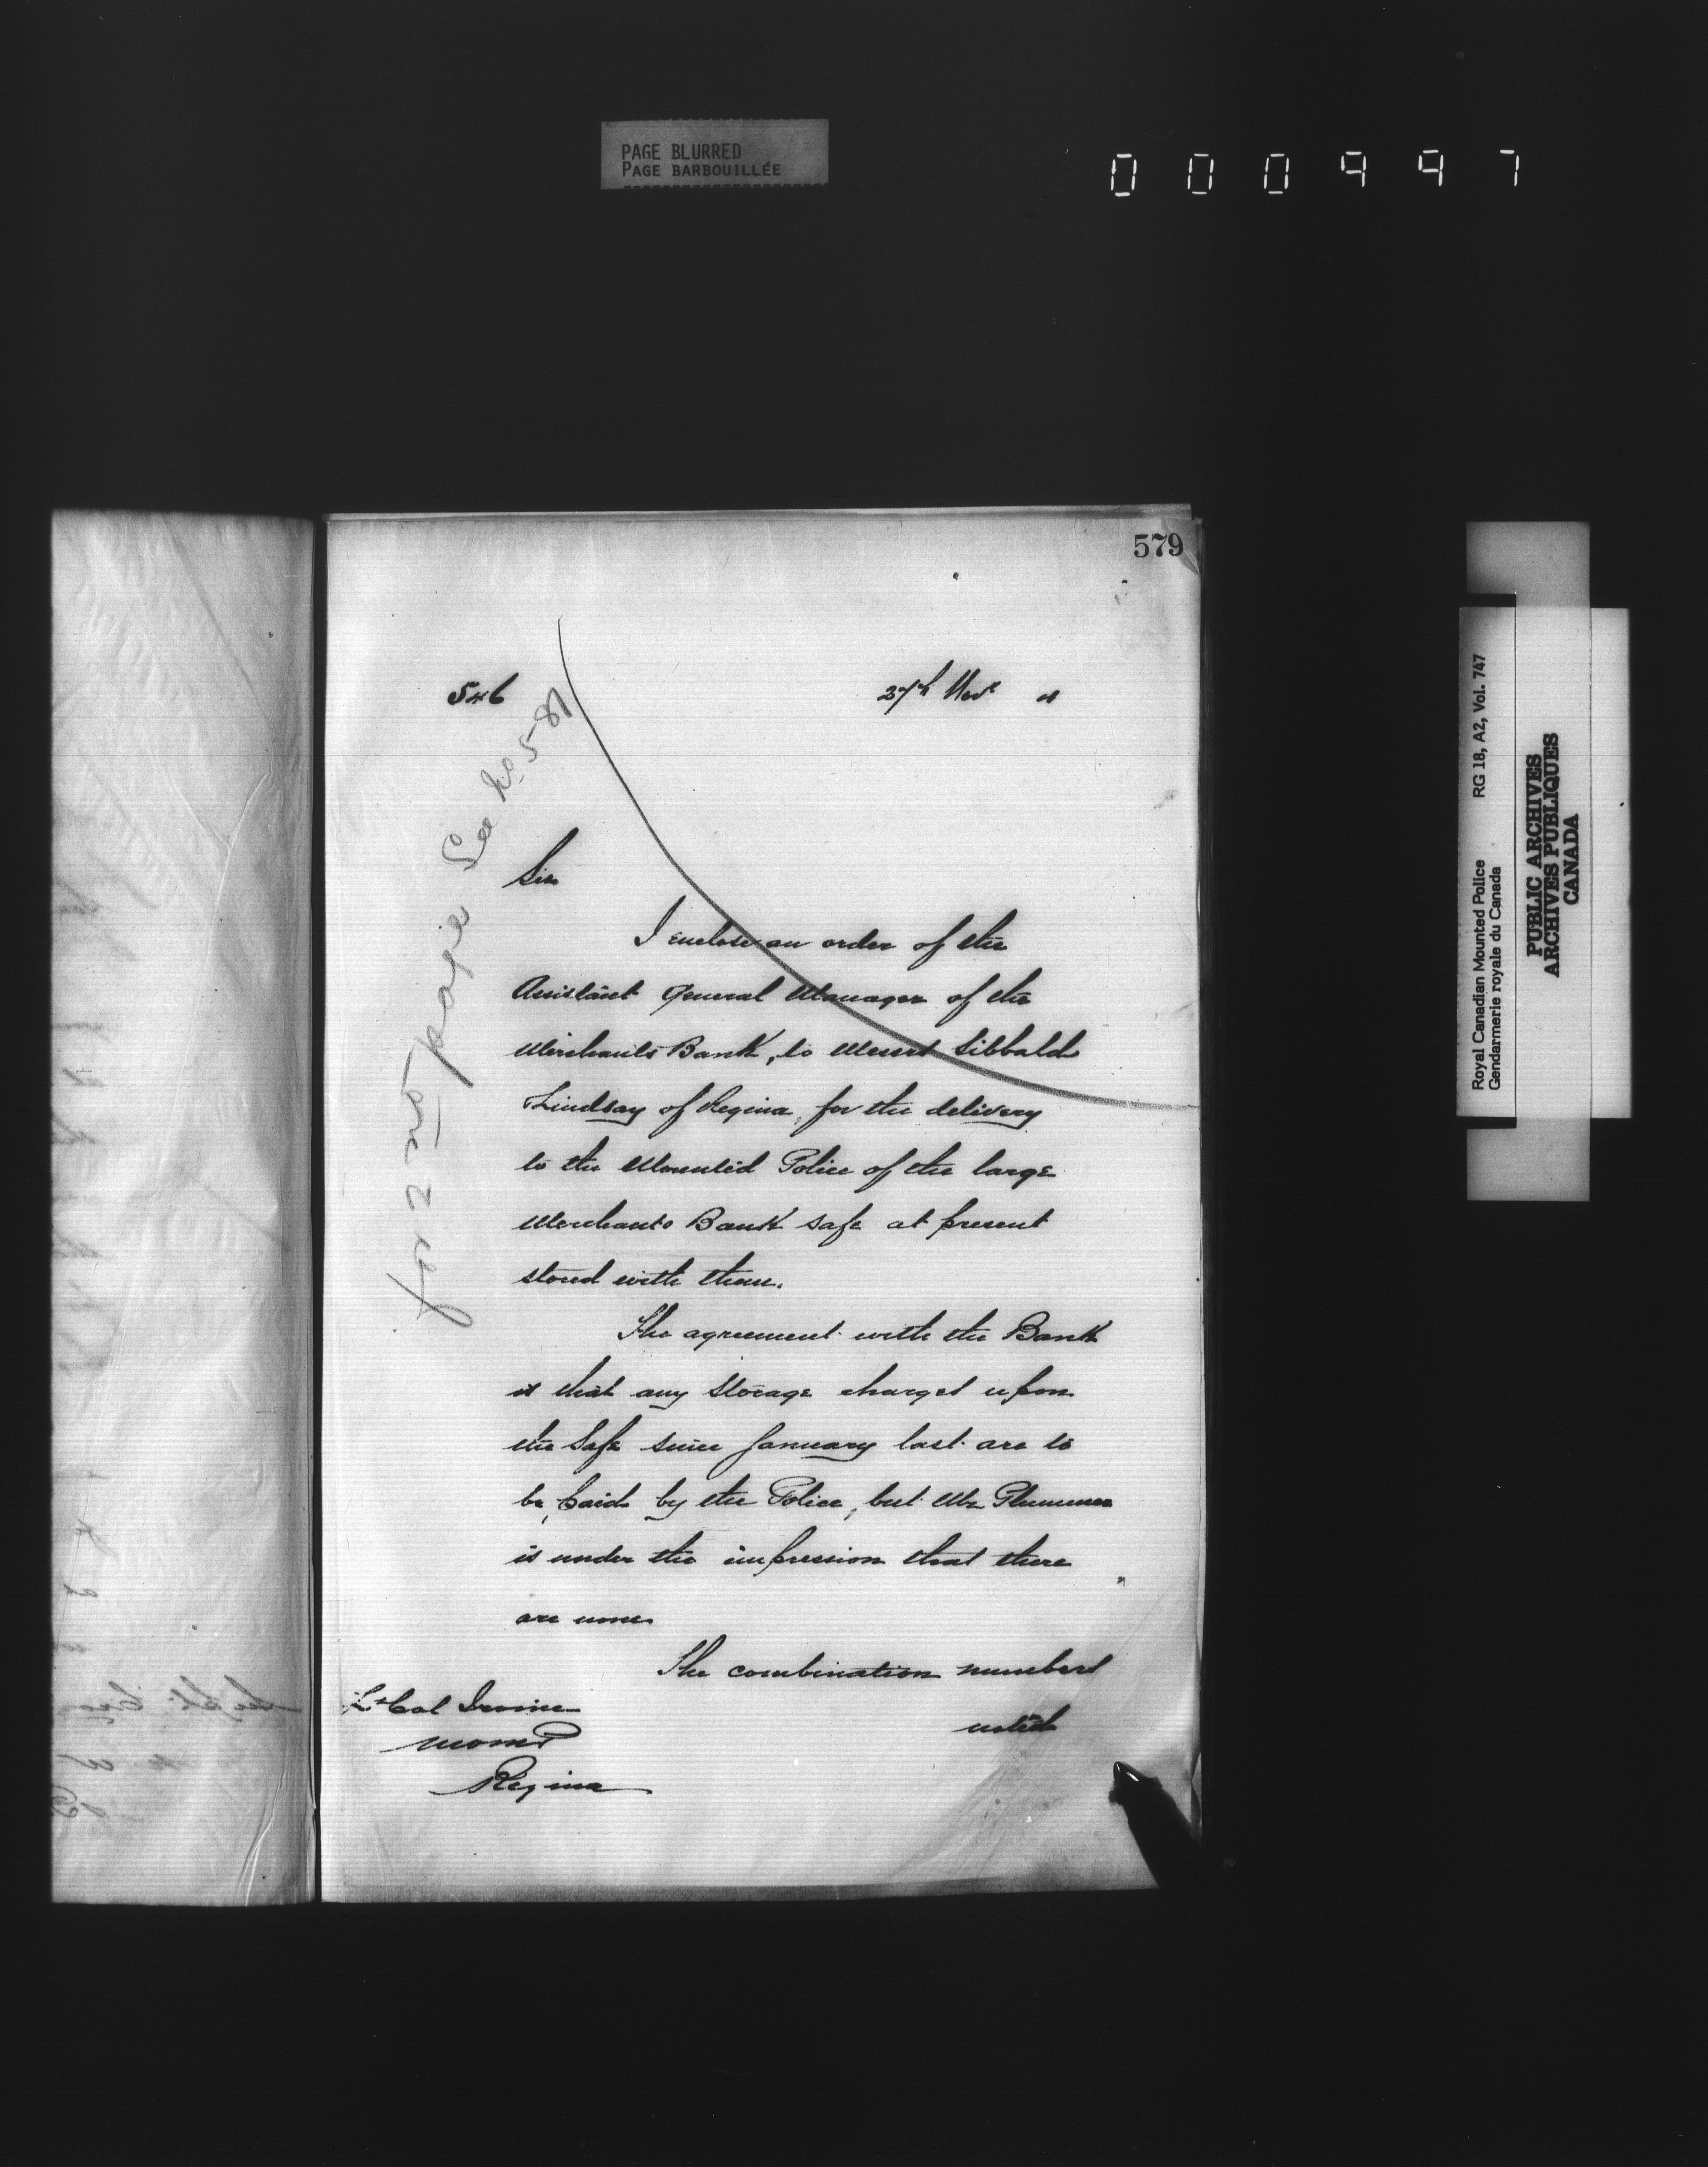 PAGE BLURRED
PAGE BARBOUILLÉE
0 0 0 9 9 7
579
546
27th Novr
for 2nd page See No 581
Sir
I enclose an order of the
Assistant General Manager of the
Merchants Bank, to Messrs Sibbald
Lindsay of Regina, for the delivery
to the Mounted Police of the large
Merchants Bank safe at present
stored with them.
The agreement with the Bank
is that any storage charges upon
the Safe since January last are to
be paid by the Police, but Mr Plummer
is under the impression that there
are none
The combination numbers
noted
Lt Col Irvine
NWMP
Regina
Royal Canadian Mounted Police RG 18, A2, Vol. 747
Gendarmerie royale du Canada
PUBLIC ARCHIVES
ARCHIVES PUBLIQUES
CANADA